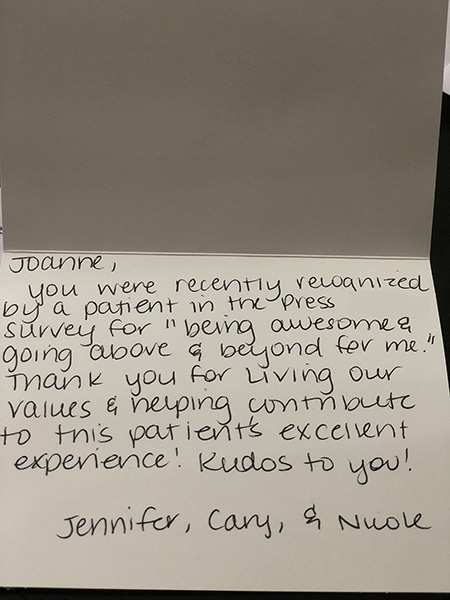 Joanne,
you were recently recognized
by a patient in the Press
Survey for "being awesome &
going above & beyond for me."
Thank you for Living our
values & helping contribute
to this patient's excellent
experience! Kudos to you!
Jennifer, Cary, & Nicole